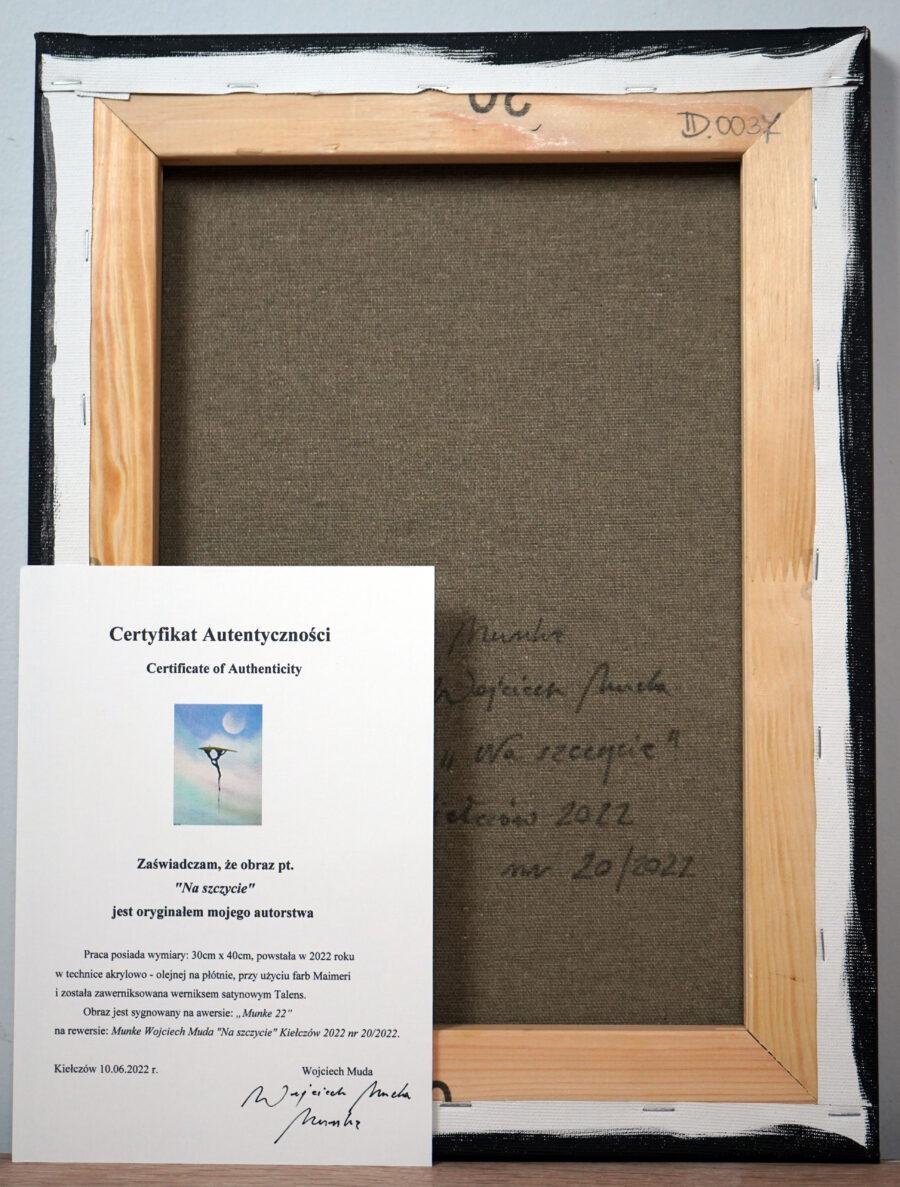 30
D.0037
Certyfikat Autentyczności
Certificate of Authenticity
Zaświadczam, że obraz pt.
"Na szczycie"
jest oryginałem mojego autorstwa
Praca posiada wymiary: 30cm x 40cm, powstała w 2022 roku
w technice akrylowo - olejnej na płótnie, przy użyciu farb Maimeri
i została zawerniksowana werniksem satynowym Talens.
Obraz jest sygnowany na awersie: „Munke 22”
na rewersie: Munke Wojciech Muda "Na szczycie" Kiełczów 2022 nr 20/2022.
Kiełczów 10.06.2022 r.
Wojciech Muda
Wojciech Muda
Munke
Munke
Wojciech Muda
„Na szczycie"
ełczów 2022
nr 20/2022